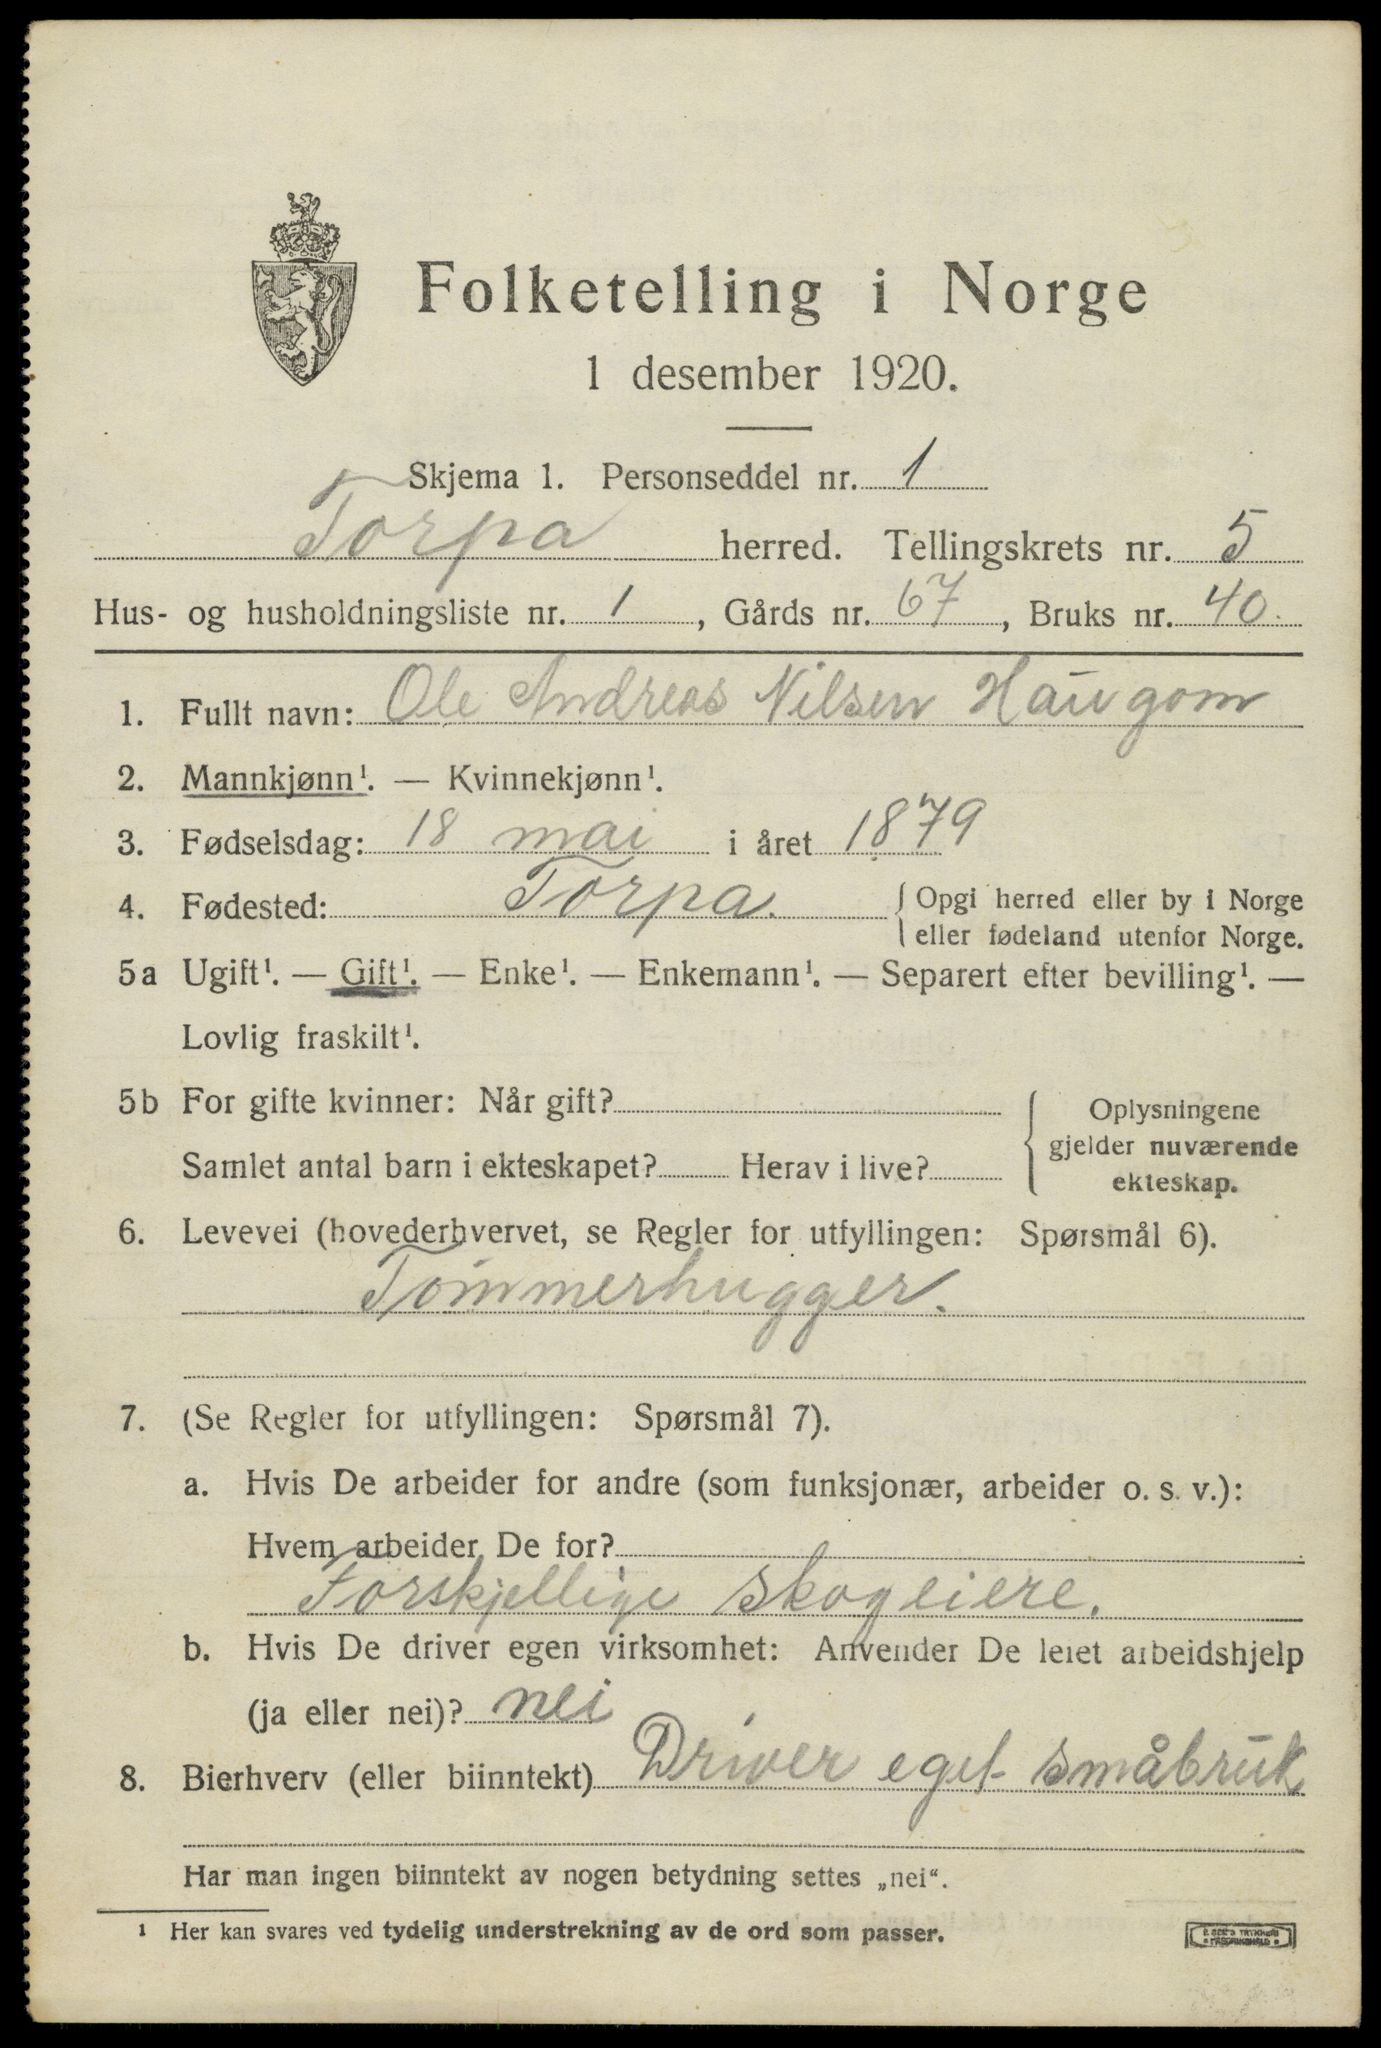 Folketelling i Norge
1 desember 1920.
Skjema 1. Personseddel nr. 1
Torpa herred. Tellingskrets nr. 5
Hus- og husholdningsliste nr. 1, Gårds nr. 67, Bruks nr. 40.
1. Fullt navn: Ole Andreas Nilsen Haugom
2. Mannkjønn¹. — Kvinnekjønn¹.
3. Fødselsdag: 18 mai i året 1879
4. Fødested: Torpa. { Opgi herred eller by i Norge
eller fødeland utenfor Norge.
5a Ugift¹. — Gift¹. — Enke¹. — Enkemann¹. — Separert efter bevilling¹. —
Lovlig fraskilt¹.
5b For gifte kvinner: Når gift?
Samlet antal barn i ekteskapet? Herav i live?
{ Oplysningene
gjelder nuværende
ekteskap.
6. Levevei (hovederhvervet, se Regler for utfyllingen: Spørsmål 6).
Tømmerhugger.
7. (Se Regler for utfyllingen: Spørsmål 7).
a. Hvis De arbeider for andre (som funksjonær, arbeider o. s. v.):
Hvem arbeider De for?
Forskjellige skogeiere.
b. Hvis De driver egen virksomhet: Anvender De leiet arbeidshjelp
(ja eller nei)? nei
8. Bierhverv (eller biinntekt) Driver eget småbruk
Har man ingen biinntekt av nogen betydning settes „nei“.
¹ Her kan svares ved tydelig understrekning av de ord som passer.